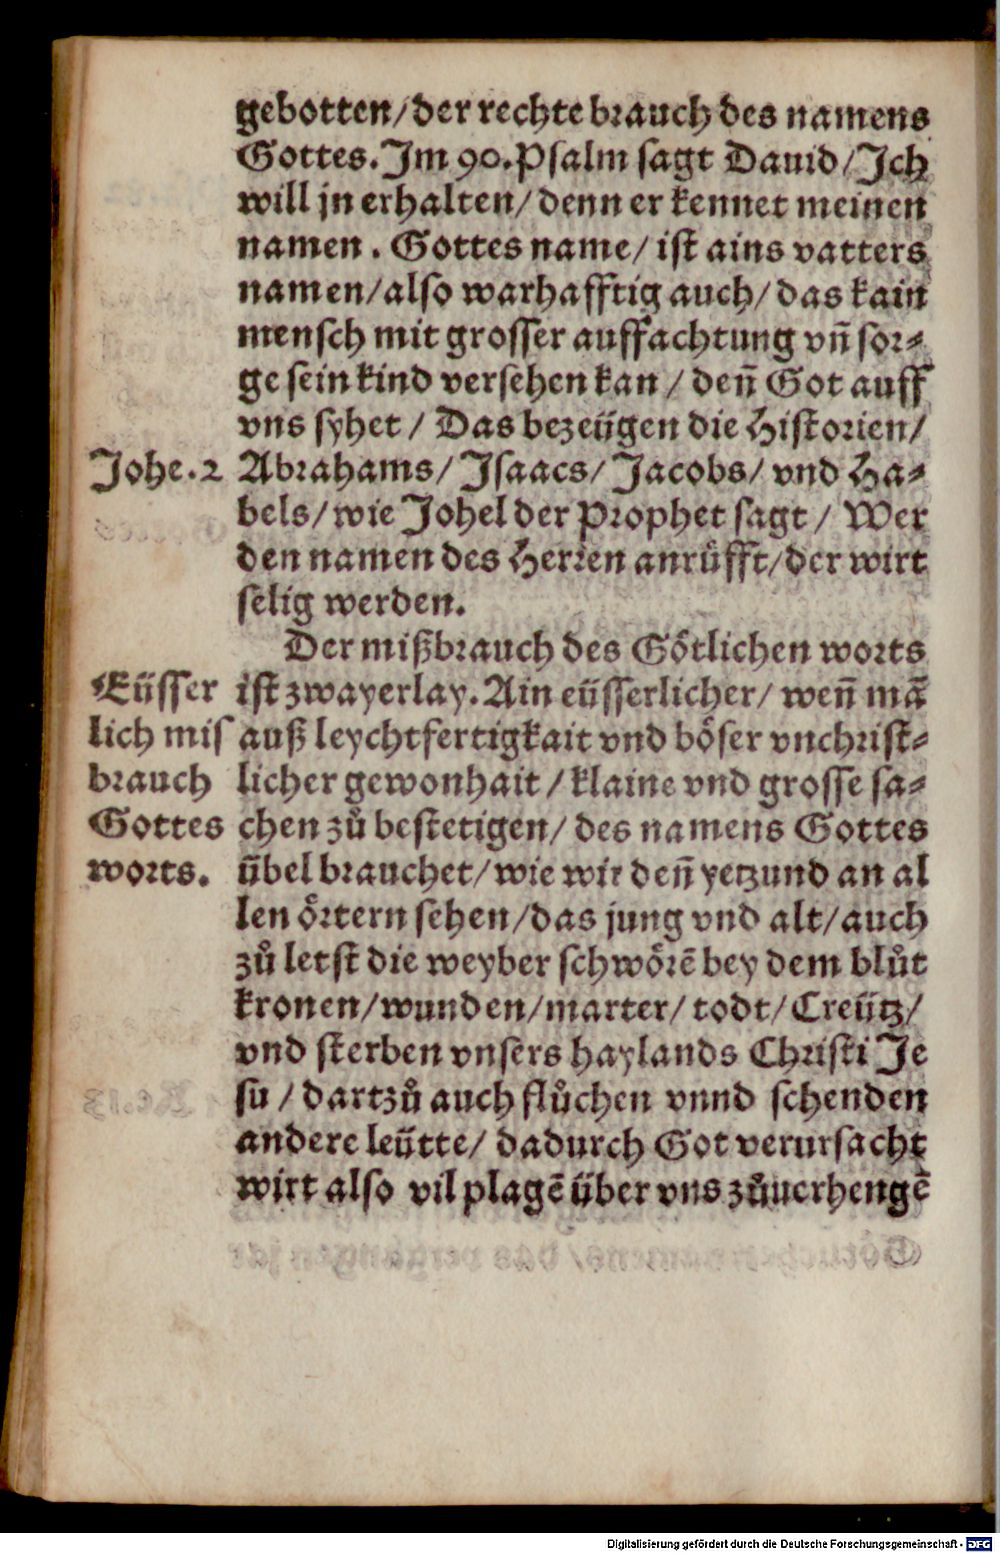 gebotten/der rechte brauch des namens
Gottes. Im 90. Psalm sagt Dauid/Ich
will jn erhalten/denn er kennet meinen
namen. Gottes name/ist ains vatters
namen/also warhafftig auch/das kain
mensch mit grosser auffachtung vn̄ sor⸗
ge sein kind versehen kan/deñ Got auff
vns syhet/Das bezeügen die Historien/
Johe. 2
Abrahams/Isaacs/Jacobs/vnd Ha⸗
bels/wie Johel der Prophet sagt/Wer
den namen des Herren anrüfft/der wirt
selig werden.
Der mißbrauch des Götlichen worts
Eüsser
lich mis
brauch
Gottes
worts.
ist zwayerlay. Ain eüsserlicher/weñ mā
auß leychtfertigkait vnd böser vnchrist⸗
licher gewonhait/klaine vnd grosse sa⸗
chen zů bestetigen/des namens Gottes
übel brauchet/wie wir deñ yetzund an al
len örtern sehen/das jung vnd alt/auch
zů letst die weyber schwörē bey dem blůt
kronen/wunden/marter/todt/Creütz/
vnd sterben vnsers haylands Christi Je
su/dartzů auch flůchen vnnd schenden
andere leütte/dadurch Got verursacht
wirt also vil plagē über vns zůuerhengē
Digitalisierung gefördert durch die Deutsche Forschungsgemeinschaft - DFG